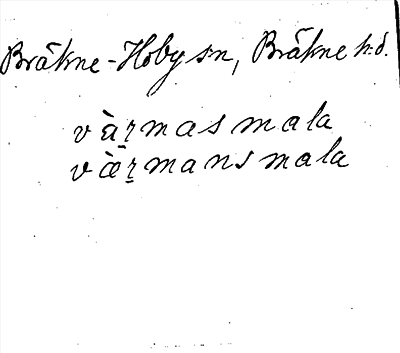 Bräkne-Hoby sn, Bräkne hd.
vàr̤masmala
vær̤̀mansmala